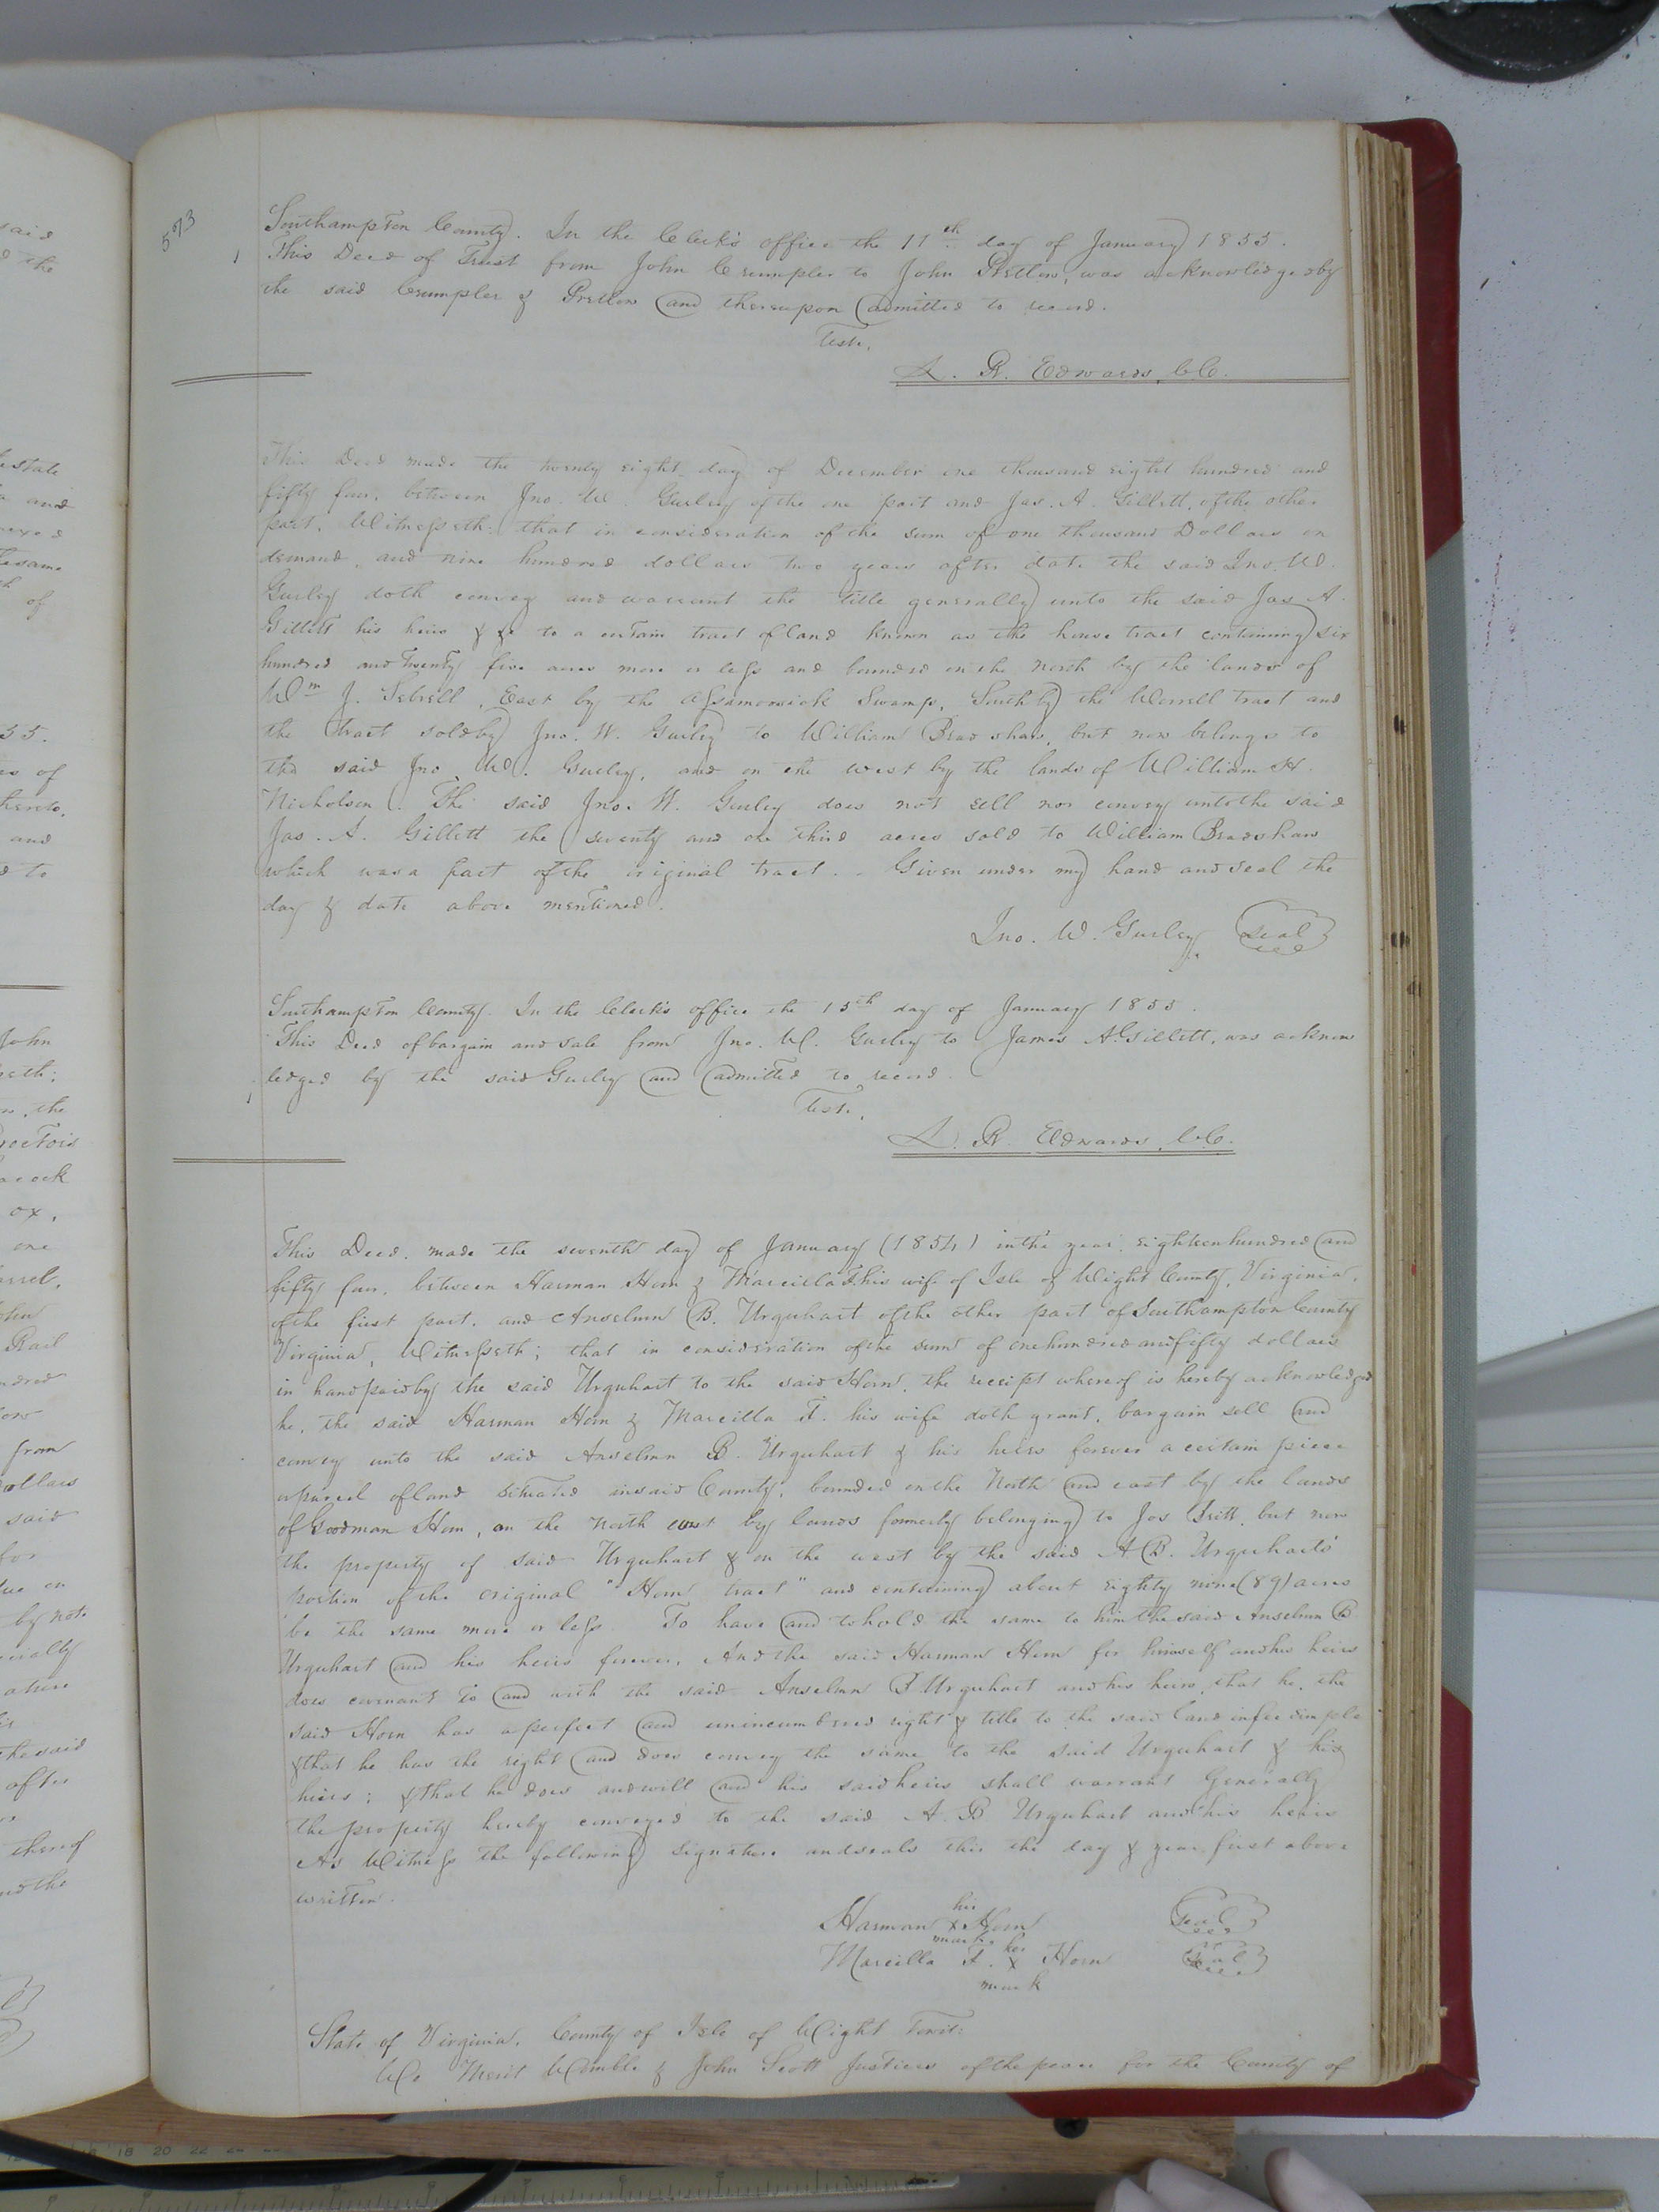 573
Southampton County. In the Clerk's office the 11th day of January 1855.
This Deed of Trust from John Crumpler to John Pretlow, was acknowledged by
the said Crumpler & Pretlow and thereupon admitted to record.
Teste,
L. R. Edwards, CC.
This Deed made the twenty eight day of December one thousand eight hundred and
fifty four, between Jno. W. Gurley of the one part and Jas. A. Gillett, of the other
part, Witnesseth: that in consideration of the sum of one thousand Dollars on
demand, and nine hundred dollars two years after date the said Jno. W.
Gurley doth convey and warrant the title generally unto the said Jas A.
Gillett his heirs & to a certain tract of land known as the house tract containing six
hundred and twenty five acres more or less and bounded on the north by the lands of
Wm J. Sebrell, East by the Assamoosick Swamp, South by the Worrell tract and
the tract sold by Jno. W. Gurley to William Bradshaw, but now belongs to
the said Jno W. Gurley, and on the west by the lands of William H.
Nicholson. The said Jno. W. Gurley does not sell nor convey unto the said
Jas. A. Gillett the seventy and one third acres sold to William Bradshaw
which was a part of the original tract. Given under my hand and seal the
day & date above mentioned.
Jno. W. Gurley seal
Southampton County. In the Clerk's office the 15th day of January 1855.
This Deed of bargain and sale from Jno. W. Gurley to James A. Gillett, was acknow
ledged by the said Gurley and admitted to record.
Test.
L. R. Edwards, CC.
This Deed, made the seventh day of January (1854) in the year, eighteen hundred and
fifty four, between Harman Horn & Marcilla T. his wife of Isle of Wight County, Virginia,
of the first part, and Anselmn B. Urquhart of the other part of Southampton County
Virginia, Witnesseth; that in consideration of the sum of one hundred and fifty dollars
in hand paid by the said Urquhart to the said Horn, the receipt whereof is hereby acknowledged
he, the said Harman Horn & Marcilla T. his wife doth grant, bargain sell and
convey unto the said Anselmn B. Urquhart & his heirs forever a certain piece
or parcel of land situated in said County, bounded on the North and east by the lands
of Goodman Horn, on the North east by lands formerly belonging to Jos Britt, but now
the property of said Urquhart & on the west by the said A B. Urquharts'
portion of the original "Horn tract" and containing about eighty nine (89) acres
be the same more or less. To have and to hold the same to him the said Anselmn B
Urquhart and his heirs forever, And the said Harman Horn for himself and his heirs
does covenant to and with the said Anselmn B Urquhart and his heirs, that he, the
said Horn has a perfect and unincumbered right & title to the said land in fee simple
& that he has the right and does convey the same to the said Urquhart & his
heirs; & that he does and will and his said heirs shall warrant Generally
the property hereby conveyed to the said A. B. Urquhart and his heirs
As Witness the following signature and seals this the day & year first above
written.
his
Harman X Horn seal
mark
her
Marcilla T. X Horn seal
mark
State of Virginia, County of Isle of Wight Towit:
We Merit Womble & John Scott Justices of the peace for the County of